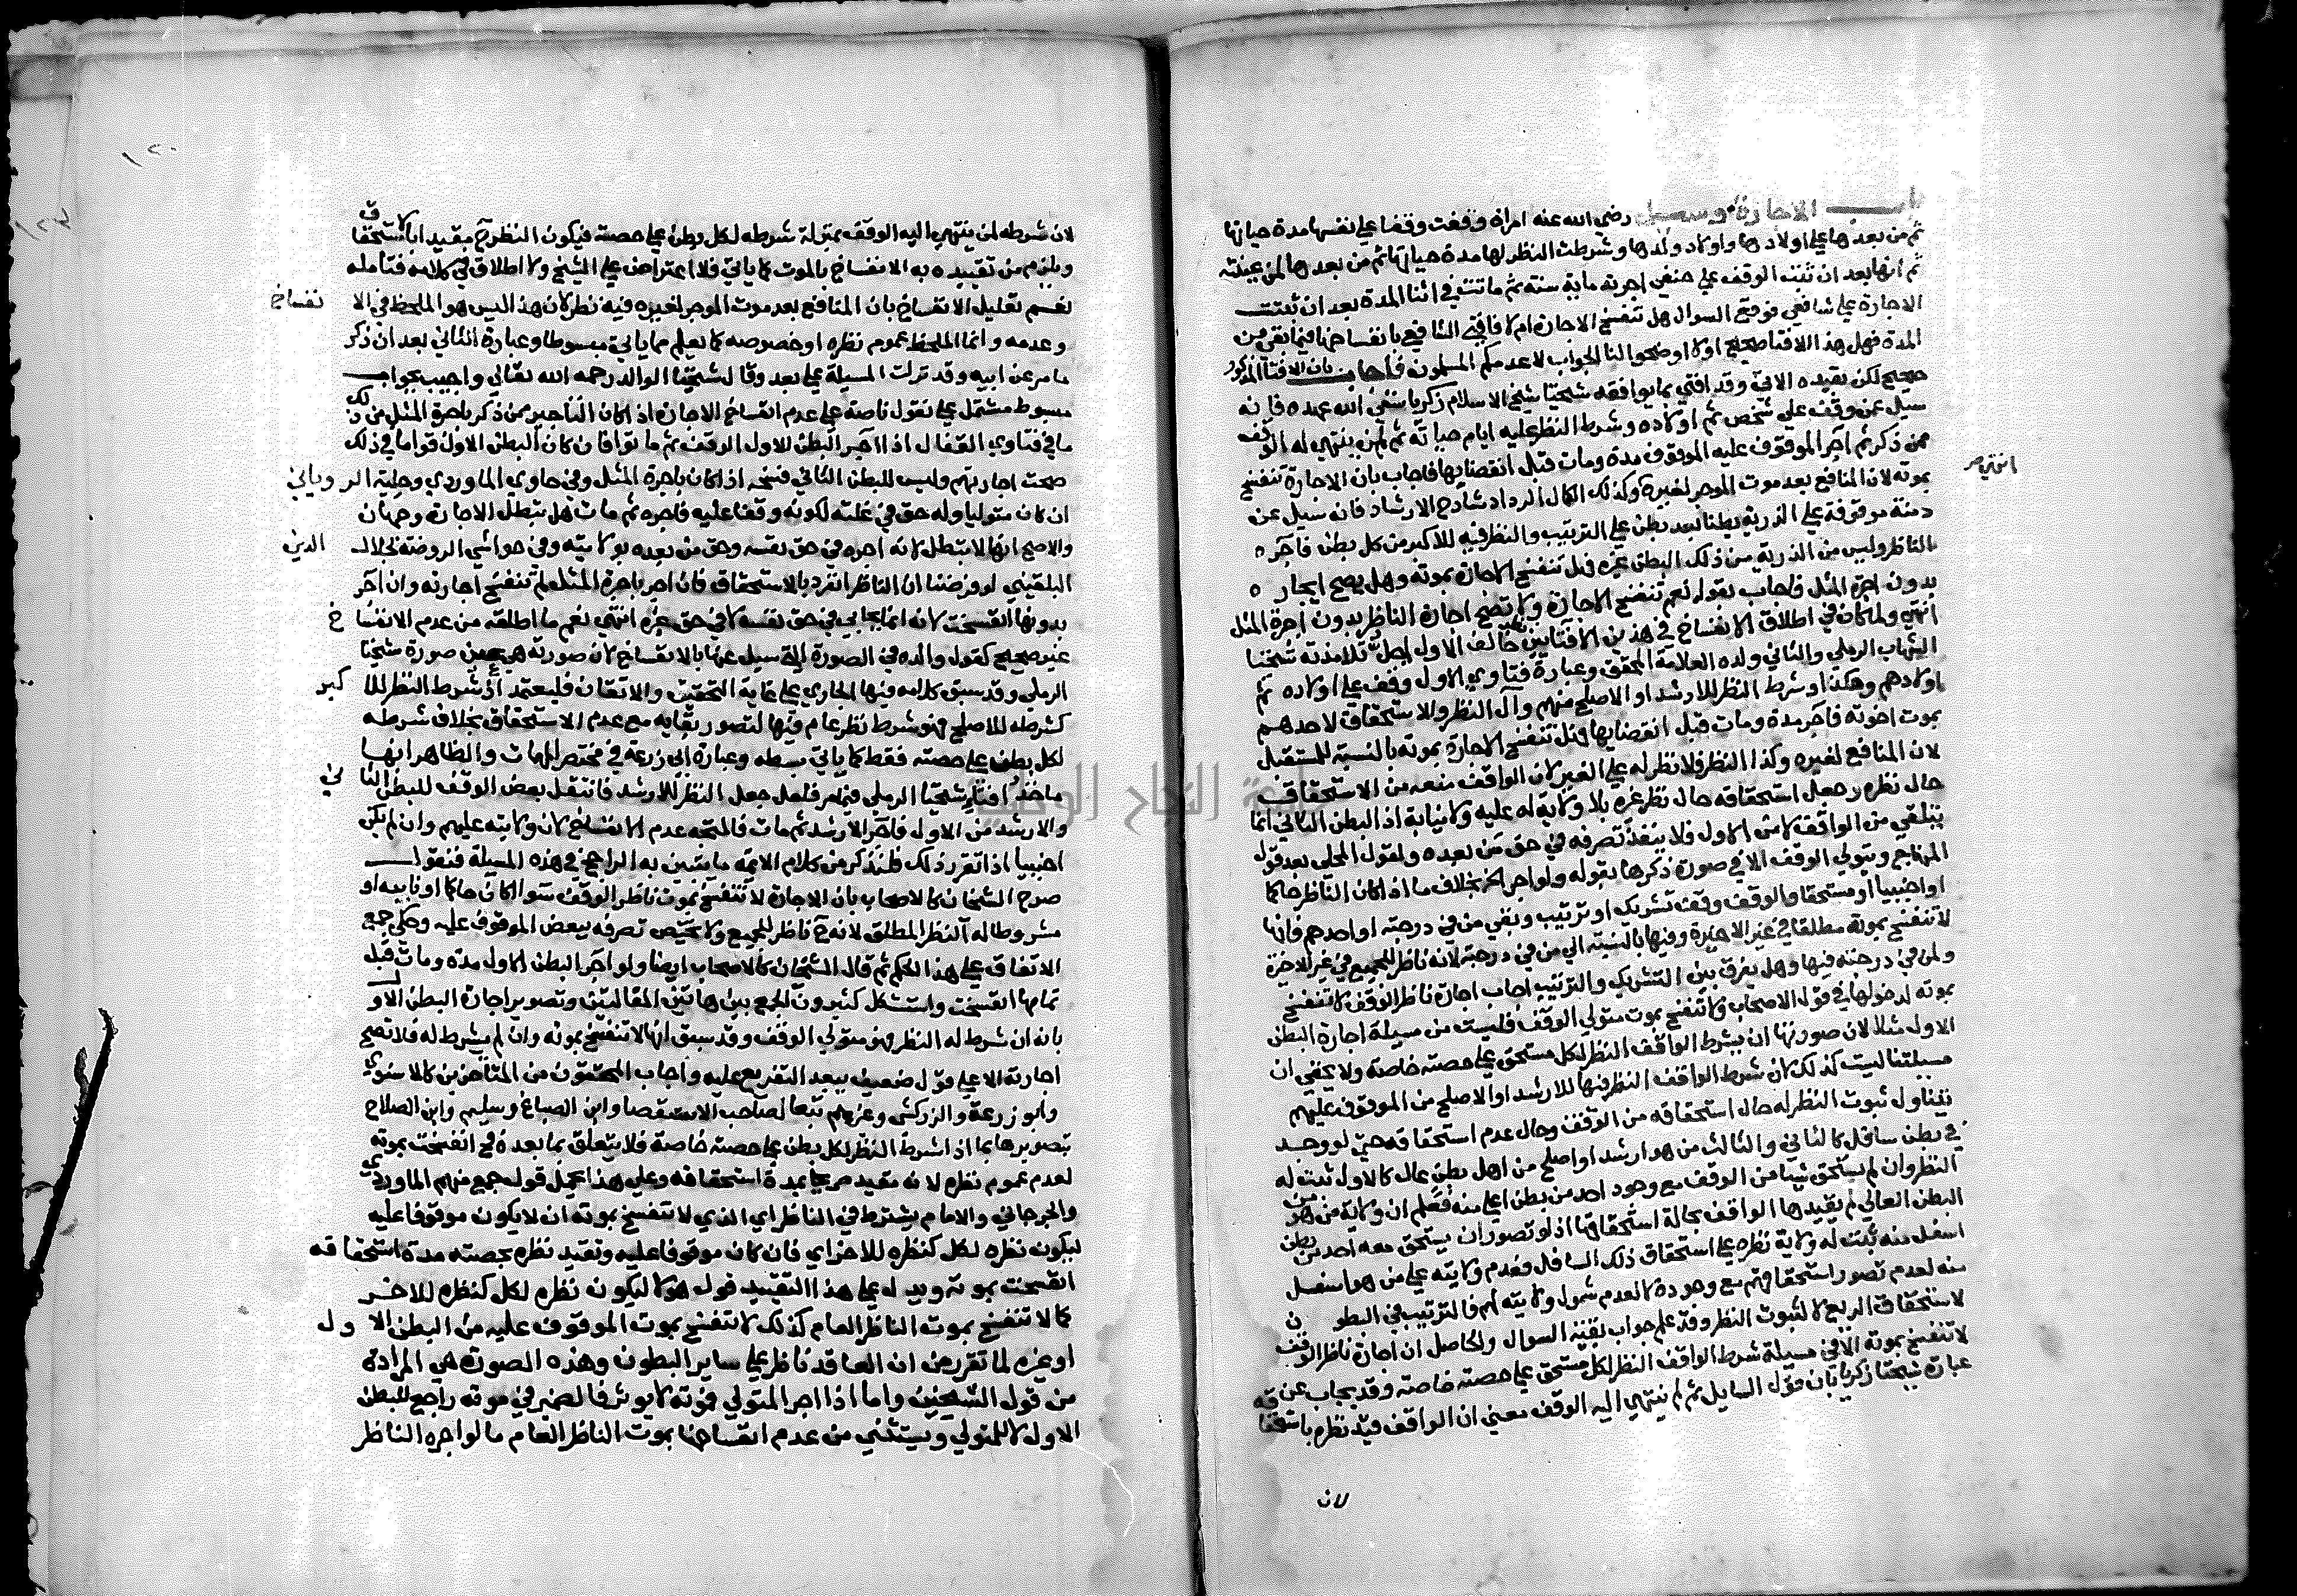 باب الاجارة وسيل رضي الله عنه امراة وقفت وقفا علي نفسها مدة حياتها
ثم من بعدها علي اولادها واولاد ولدها وشرطت النظر لها مدة حياتها ثم من بعدها لمن عينته
ثم انها بعد ان ثبت الوقف علي حنفي اجرته ماية سنة ثم ماتت في اثنا المدة بعد ان ثبتت
الاجارة علي شافعي فوقع السوال هل تنفسخ الاجارة ام لا فافتي الشافعي بانفساخها فيما بقي من
المدة فهل هذا الافتا صحيح اولا اوضحوا لنا الجواب لا عدمكم المسلمون فاجاب بان الافتا المذكور
صحيح لكن بقيده الاتي وقد افتي بما يوافقه شيخنا شيخ الاسلام زكريا سقي الله عهده فانه
سيل عمن وقف علي شخص ثم اولاده وشرط النظر عليه ايام حياته ثم لمن ينتهي له الوقف
ممن ذكر ثم آجر الموقوف عليه الموقوف مدة ومات قبل انقضايها فاجاب بان الاجارة تنفسخ
بموته لان المنافع بعد موت الموجر لغيره وكذلك الكمال الرداد شارح الارشاد فانه سيل عن
دمنة موقوفة علي الذرية بطنا بعد بطن علي الترتيب والنظر فيه للاكبر من كل بطن فآجره
الناظر وليس من الذرية من ذلك البطن غيره فهل تنفسخ الاجارة بموته وهل يصح ايجاره
بدون اجرة المثل فاجاب بقوله نعم تنفسخ الاجارة ولا تصح اجارة الناظر بدون اجرة المثل
انتهي ولما كان في اطلاق الانفساخ في هذين الافتايين خالف الاول اجل تلامذته شيخنا
الشهاب الرملي والثاني ولده العلامة المحقق وعبارة فتاوي الاول وقف علي اولاده ثم
اولادهم وهكذا وشرط النظر للارشد او الاصلح منهم وآل النظر والاستحقاق لاحدهم
بموت اخوته فآجر مدة ومات قبل انقضايها فهل تنفسخ الاجارة بموته بالنسبة للمستقبل
لان المنافع لغيره وكذا النظر فلا نظر له علي الغير لان الواقف منعه من الاستحقاق
حال نظره وجعل استحقاقه حال نظر غيره بلا ولاية له عليه ولا نيابة اذ البطن الثاني انما
يتلقي من الواقف لا من الاول فلا ينفذ تصرفه في حق من بعده ولقول المحلي بعد قول
المنهاج ومتولي الوقف الا في صورة ذكرها بقوله ولو اجر الخ بخلاف ما اذا كان الناظر حاكما
او اجنبيا او مستحقا والوقف وقف تشريك او ترتيب وبقي من في درجته او احدهم فانها
لا تنفسخ بموته مطلقا في غير الاخيرة وفيها بالنسبة الي من في درجته لانه ناظر للجميع في غير الاخيرة
ولمن في درجته فيها وهل يفرق بين التشريك والترتيب اجاب اجارة ناظر الوقف لا تنفسخ
بموته لدخولها في قول الاصحاب ولا تنفسخ بموت متولي الوقف فليست من مسيلة اجارة البطن
الاول مثلا لان صورتها ان يشرط الواقف النظر لكل مستحق علي حصته خاصة ولا يخفي ان
مسيلتنا ليست كذلك لان شرط الواقف النظر فيها للارشد او الاصلح من الموقوف عليهم
يتناول ثبوت النظر له حال استحقاقه من الوقف وحال عدم استحقاقه حتي لو وجد
في بطن سافل كالثاني والثالث من هو ارشد او اصلح من اهل بطن عال كالاول ثبت له
النظر وان لم يستحق شيا من الوقف مع وجود احد من بطن اعلي منه فعلم ان ولاية من هو من
البطن العالي لم يقيدها الواقف بحالة استحقاقها اذ لو تصور ان يستحق معه احد من بطن
اسفل منه ثبتت له ولاية نظره علي استحقاق ذلك السافل فعدم ولايته علي من هو اسفل
منه لعدم تصور استحقاقهم مع وجوده لا لعدم شمول ولايته لهم فالترتيب في البطون
لاستحقاق الريع لا لثبوت النظر وقد علم جواب بقية السوال والحاصل ان اجارة ناظر الوقف
لا تنفسخ بموته الا في مسيلة شرط الواقف النظر لكل مستحق علي حصته خاصة وقد يجاب عن
عبارة شيخنا زكريا بان قول السايل ثم لم ينتهي اليه الوقف معني ان الواقف قيد نظره باستحقاقه
لان
انتهي ص
لان شرطه لمن ينتهي اليه الوقف بمنزلة شرطه لكل بطن علي حصته فيكون النظر ح مقيدا بالاستحقاق
ويلزم من تقييده به الانفساخ بالموت كما ياتي فلا اعتراض علي الشيخ ولا اطلاق في كلامه فتامله
نعم تعليل الانفساخ بان المنافع بعد موت الموجر لغيره فيه نظر لان هذا ليس هو الملحظ في الانفساخ
وعدمه وانما الملحظ عموم نظره او خصوصه كما يعلم مما ياتي مبسوطا وعبارة الثاني بعد ان ذكر
ما مر عن ابيه وقد نزلت المسيلة علي بعد وقال شيخنا الوالد رحمه الله تعالي واجيب بجواب
مبسوط مشتمل علي نقول ناصة علي عدم انفساخ الاجارة اذا كان التاجير ممن ذكر باجرة المثل من ذلك
ما في فتاوي القفال اذا اجر البطن الاول الوقف ثم ماتوا فان كان البطن الاول قواما في ذلك
صحت اجارتهم وليس للبطن الثاني فسخه اذا كان باجرة المثل وفي حاوي الماوردي وحلية الروياني
ان كان متوليا وله حق في غلته لكونه وقفا عليه فاجره ثم مات هل تبطل الاجارة وجهان
والاصح انها لا تبطل لانه اجره في حق نفسه وحق من بعده بولايته وفي حواشي الروضة لجلال الدين
البلقيني لو فرضنا ان الناظر انفرد بالاستحقاق فان اجر باجرة المثل لم تنفسخ اجارته وان اجر
بدونها انفسخت لانه انما يحابي في حق نفسه لا في حق غيره انتهي نعم ما اطلقه من عدم الانفساخ
غير صحيح كقول والده في الصورة التي سيل عنها بالانفساخ لان صورته هي عين صورة شيخنا
الرملي وقد سبق كلامه فيها الجاري علي غاية التحقيق والاتقان فليعتمد اذ شرط النظر للاكبر
كشرطه للاصلح فهو شرط نظر عام فيها لتصور بقايه مع عدم الاستحقاق بخلاف شرطه
لكل بطن علي حصته فقط كما ياتي بسطه وعبارة ابي زرعة في مختصر المهمات والظاهر انها
ماخذ افتا شيخنا الرملي فيما مر فلعل جعل النظر للارشد فانتقل بعض الوقف للبطن الثاني
والارشد من الاول فآجر الارشد ثم مات فالمتجه عدم الانفساخ لان ولايته عليهم وان لم يكن
اجنبيا اذا تقرر ذلك فلنذكر من كلام الايمة ما يتبين به الراجح في هذه المسيلة فنقول
صرح الشيخان كالاصحاب بان الاجارة لا تنفسخ بموت ناظر الوقف سوا كان حاكما او نايبه او
مشروطا له النظر المطلق لانه ح ناظر للجميع ولا يختص تصرفه ببعض الموقوف عليه وحكي جمع
الاتفاق علي هذا الحكم ثم قال الشيخان كالاصحاب ايضا ولو اجر البطن الاول مدة ومات قبل
تمامها انفسخت واستشكل كثيرون الجمع بين هاتين المقالتين وتصوير اجارة البطن الاول
بانه ان شرط له النظر فهو متولي الوقف وقد سبق انها لا تنفسخ بموته وان لم يشرط له فلا تصح
اجارته الا علي قول ضعيف يبعد التفريع عليه واجاب المحققون من المتاخرين كالاسنوي
وابو زرعة والزركشي وغيرهم تبعا لصاحب الاستقصا وابن الصباغ وسليم وابن الصلاح
بتصويرها بما اذا شرط النظر لكل بطن علي حصته خاصة فلا يتعلق بما بعده فح انفسخت بموته
لعدم عموم نظره لانه مقيد صريحا بمدة استحقاقه وعلي هذا يحمل قول جمع منهم الماوردي
والجرجاني والامام يشترط في الناظر اي الذي لا تنفسخ بموته ان لا يكون موقوفا عليه
ليكون نظره لكل كنظره للاخر اي فان كان موقوفا عليه وتقيد نظره بحصته مدة استحقاقه
انفسخت بموته ويدل علي هذا التقييد قول هولا ليكون نظره لكل كنظره للاخر
كما لا تنفسخ بموت الناظر العام كذلك لا تنفسخ بموت الموقوف عليه من البطن الاول
او غيره لما تقرر من ان العاقد ناظر علي ساير البطون وهذه الصورة هي المرادة
من قول الشيخين واما اذا اجر المتولي فموته لا يوثر فالضمير في موته راجع للبطن
الاول لا للمتولي ويستثني من عدم انفساخها بموت الناظر العام ما لو اجره الناظر